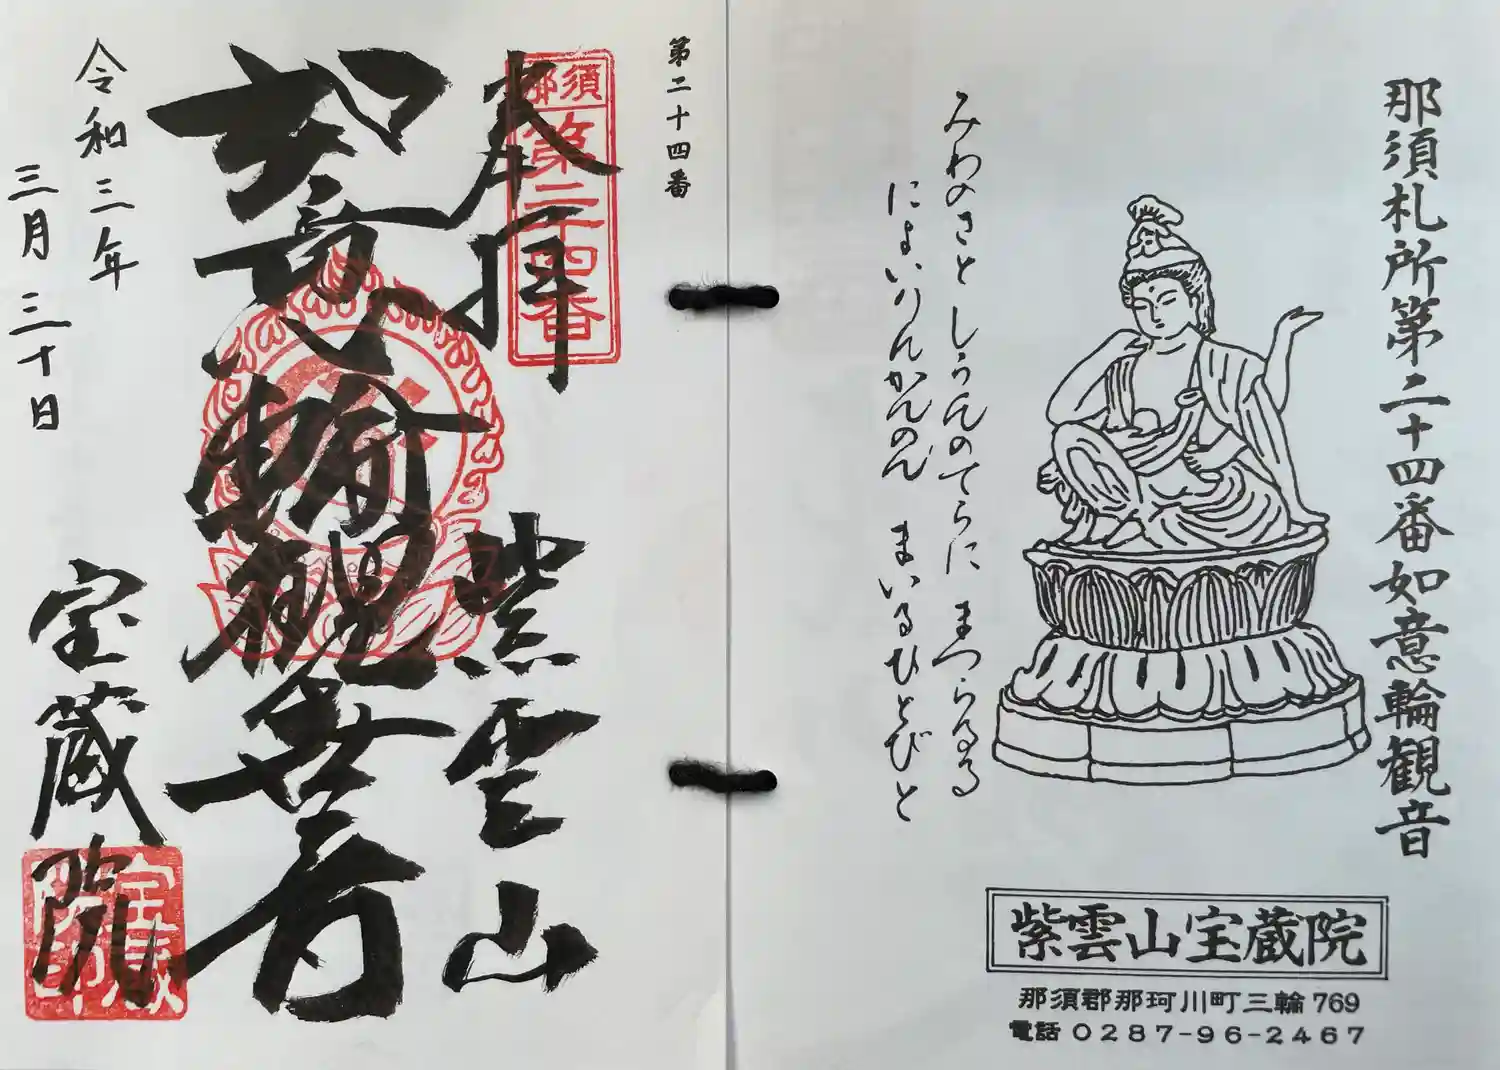 那須札所第二十四番如意輪観音
みわのさとしうんのてらにまつらるる
によいりんかんのんまいるひとびと
紫雲山宝蔵院
那須郡那珂川町三輪769
電話0287-96-2467
第二十四番
那須
第二十四番
奉拝
紫雲山
如意輪観世音
令和三年
三月三十日
宝蔵院
宝蔵
院印